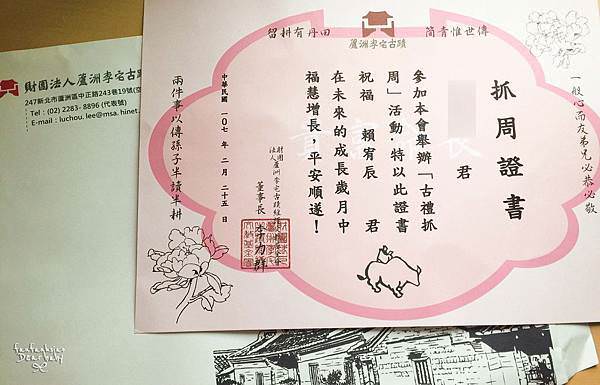 財團法人蘆洲李宅古蹟
247新北市蘆洲區中正路243巷19號
Tel : (02) 2283- 8896 (代表號)
E-mail : luchou. lee@msa. hinet.
留耕有丹田
蘆洲李宅古蹟
簡青惟世傳
一般心而友弟兄必恭必敬
抓周證書
君
參加本會舉辦「古禮抓
周」活動,特以此證書
祝福 賴宥辰 君
在未來的成長歲月中
福慧增長、平安順遂!
財團
法人蘆洲李宅古蹟
董事長
中華民國 一0七 年 二 月 二十五 日
兩件事以傳孫子半讀半耕
Dearbaby